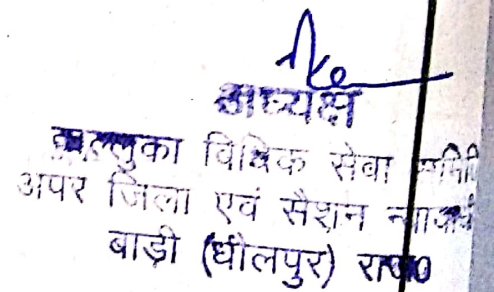 अध्यक्ष
ताल्लुका विधिक सेवा समिति
अपर जिला एवं सैशन
बाड़ी (धौलपुर) राज०